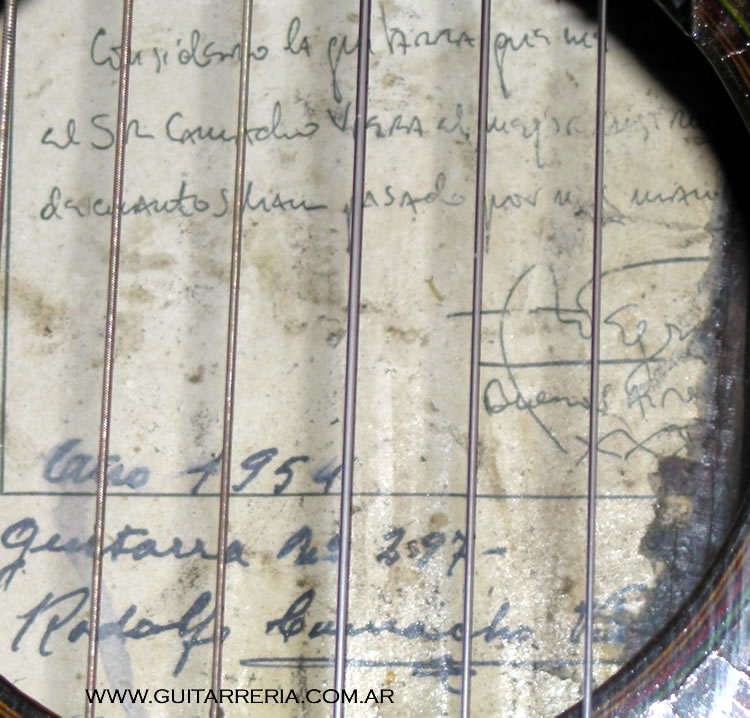 Considero la guitarra que me
al Sr Camacho Viera el mejor
de cuantos han pasado por mis mano
Buenos Aire
Año 1954
guitarra No 297-
Rodolfo Camacho Vi
WWW.GUITARRERIA.COM.AR